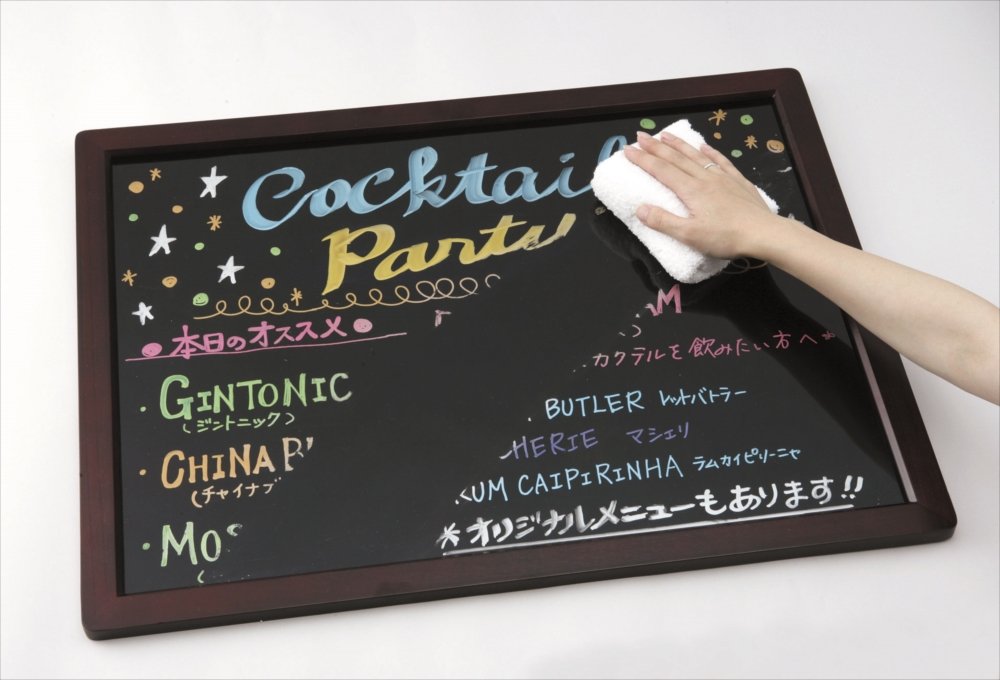 Cocktail
Party
本日のオススメ
カクテルを飲みたい方へ
・GINTONIC
(ジントニック)
・CHINA
(チャイナブ
・Mo
BUTLER レットバトラー
HERIE マシェリ
UM CAIPIRINHA ラムカイピリーニャ
*オリジナルメニューもあります!!